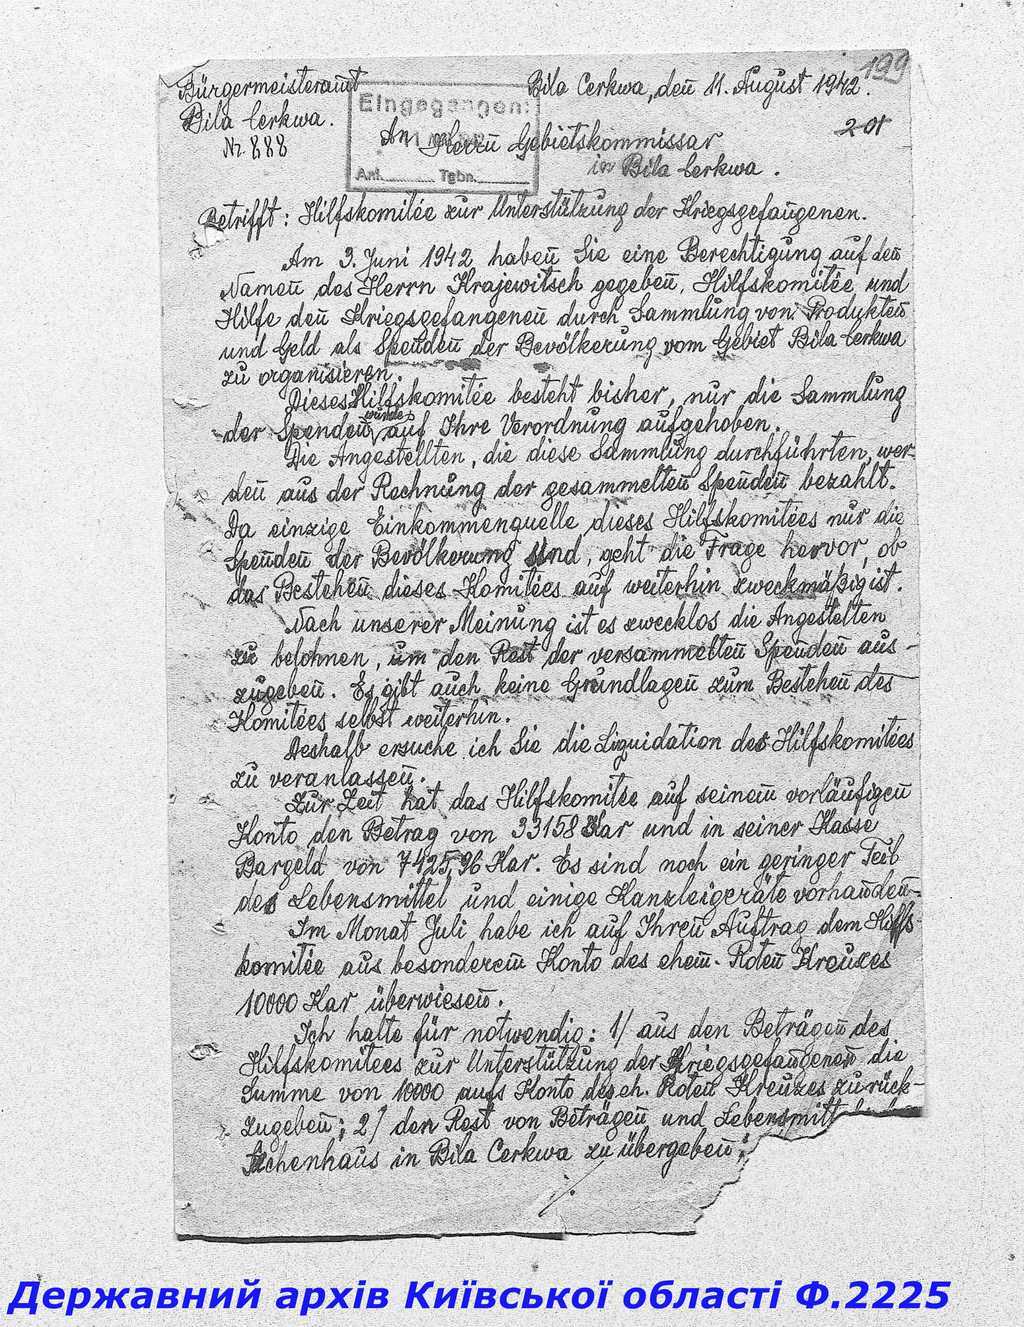 199
Bürgermeisteramt
Bila Cerkwa.
Nr. 888
Bila Cerkwa, den 11. August 1942.
201
Eingegangen:
Ant. Tgbn.
An Herrn Gebietskommissar
in Bila Cerkwa.
Betrifft: Hilfskomitée zur Unterstützung der Kriegsgefangenen.
Am 3. Juni 1942 haben Sie eine Berechtigung auf den
Namen des Herrn Krajewitsch gegeben, Hilfskomitée und
Hilfe den Kriegsgefangenen durch Sammlung von Produkten
und Geld als Spenden der Bevölkerung vom Gebiet Bila Cerkwa
zu organisieren.
Dieses Hilfskomitée besteht bisher, nur die Sammlung
der Spenden wurde auf Ihre Verordnung aufgehoben.
Die Angestellten, die diese Sammlung durchführten, wer-
den aus der Rechnung der gesammelten Spenden bezahlt.
Da einzige Einkommenquelle dieses Hilfskomitées nur die
Spenden der Bevölkerung sind, geht die Frage hervor, ob
das Bestehen dieses Komitées auf weiterhin zweckmäßig ist.
Nach unserer Meinung ist es zwecklos die Angestellten
zu belohnen, um den Rest der versammelten Spenden aus-
zugeben. Es gibt auch keine Grundlagen zum Bestehen des
Komitées selbst weiterhin.
Deshalb ersuche ich Sie die Liquidation des Hilfskomitées
zu veranlassen.
Zur Zeit hat das Hilfskomitée auf seinem vorläufigen
Konto den Betrag von 33158 Kar und in seiner Kasse
Bargeld von 7425,96 Kar. Es sind noch ein geringer Teil
des Lebensmittel und einige Kanzleigeräte vorhanden.
Im Monat Juli habe ich auf Ihren Auftrag dem Hilfs-
komitée aus besonderem Konto des ehem. Roten Kreuzes
10000 Kar überwiesen.
Ich halte für notwendig: 1/ aus den Beträgen des
Hilfskomitees zur Unterstützung der Kriegsgefangenen die
Summe von 10000 aufs Konto des eh. Roten Kreuzes zurück-
zugeben; 2/ den Rest von Beträgen und Lebensmitt
in Bila Cerkwa zu übergeben;
Державний архів Київської області Ф.2225